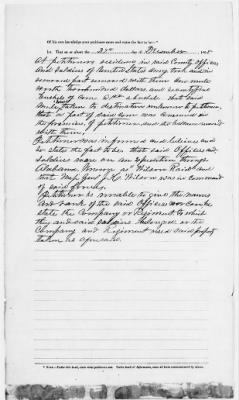 Of his own knowledge your petitioner states and avers the fact to be:—
1st. That on or about the day of December
At petitioners residing in said County officers
and Soldiers of United States Army took and
removed and removed with them One mule
worth two hundred dollars and seventyfive
bushels of Corn a bushel that said
mule taken to destination unknown to petitioner
that a part of said corn was consumed on
the premises of petitioner, and the balance removed
with them.
Petitioner was informed and believes and
so states the fact to be, that said Officers and
Soldiers were on an Expedition through
Alabama known as Wilson Raid and
that Maj. Genl J. H. Wilson was in command
of said forces.
Petitioner is unable to give the name
and rank of the said Officers nor can he
state the Company or Regiment to which
they and said soldiers belonged or the
Company and Regiment used said property
taken as aforesaid.